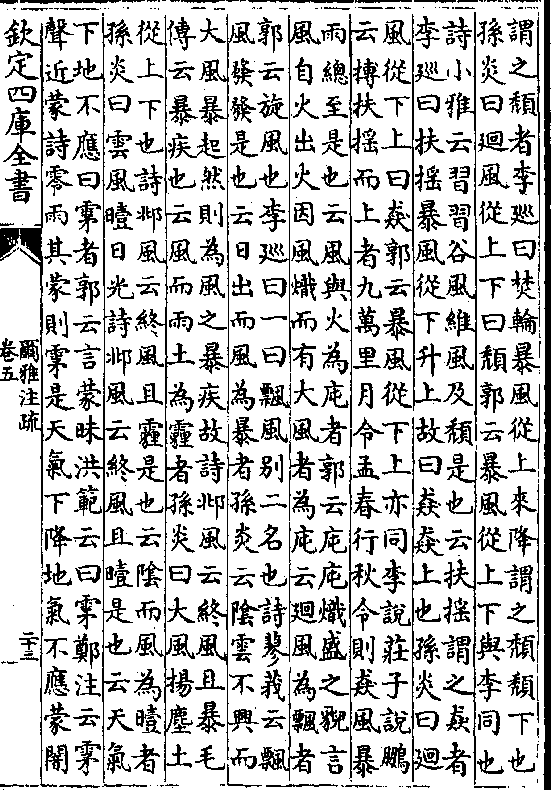 謂之頽者李廵曰焚輪暴風從上來降謂之頽頽下也
孫炎曰迴風從上下曰頽郭云暴風從上下與李同也
詩小雅云習習谷風維風及頽是也云扶摇謂之猋者
李廵曰扶摇暴風從下升上故曰猋猋上也孫炎曰迴
風從下上曰猋郭云暴風從下上亦同李說莊子說鵬
云搏扶摇而上者九萬里月令孟春行秋令則猋風暴
雨總至是也云風與火為庉者郭云庉庉熾盛之貌言
風自火出火因風熾而有大風者為庉云迴風為飄者
郭云旋風也李廵曰一曰飄風别二名也詩蓼莪云飄
風發發是也云日出而風為暴者孫炎云陰雲不興而
大風暴起然則為風之暴疾故詩邶風云終風且暴毛
傳云暴疾也云風而雨土為霾者孫炎曰大風揚塵土
從上下也詩邶風云終風且霾是也云陰而風為曀者
孫炎曰雲風曀日光詩邶風云終風且曀是也云天氣
下地不應曰雺者郭云言蒙昧洪範云曰雺鄭注云雺
聲近蒙詩零雨其蒙則雺是天氣下降地氣不應蒙闇
欽定四庫全書
爾雅注疏
卷五
二十三